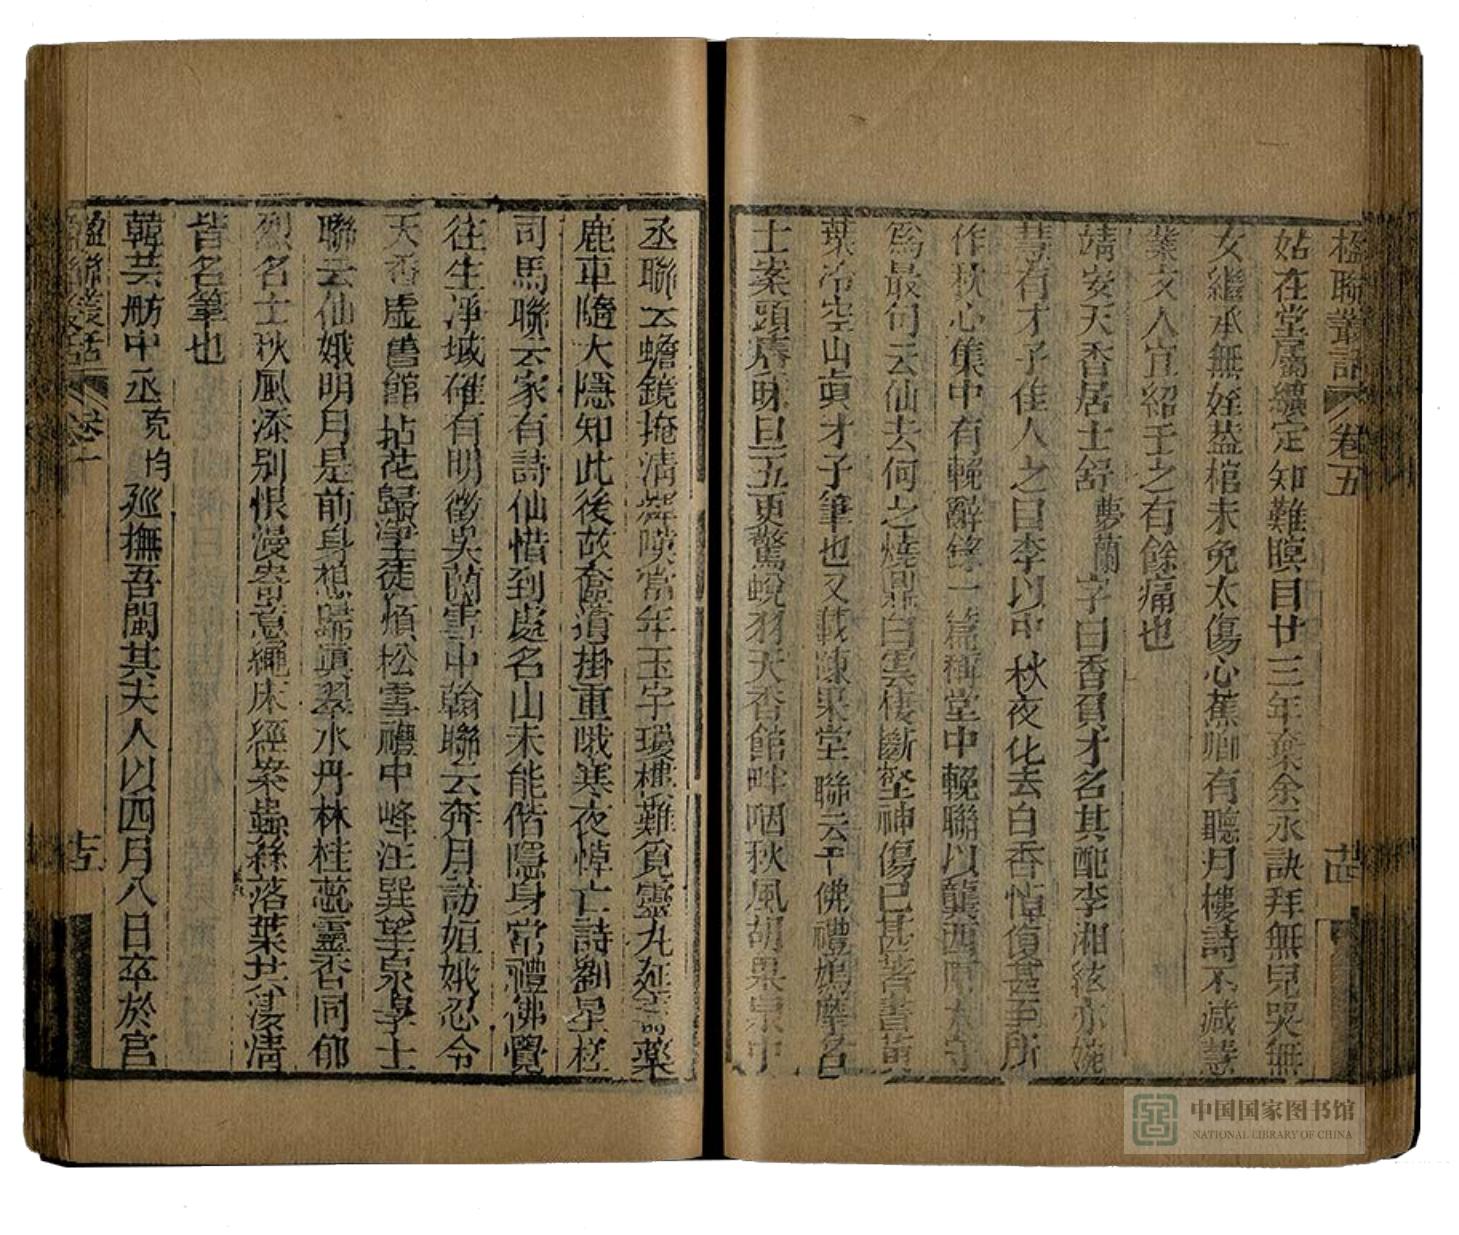 楹聯叢話 卷五
姑在堂屬纊定知難瞑目廿三年棄余永訣拜無兒哭無
女繼承無姪蓋棺未免太傷心蕉卿有聽月樓詩不減慧
業文人宜紹壬之有餘痛也
靖安天香居士舒夢蘭字白香負才名其配李湘絃亦婉
慧有才子佳人之目李以中秋夜化去白香悼傷甚至所
作秋心集中有輓辭銘一篇稱堂中輓聯以龔西原太守
爲最句云仙去何之燒鼎白雲棲斷壑神傷已甚著書黃
葉冷空山眞才子筆也又載陳果堂聯云千佛禮鳩摩名
士案頭癠昧旦五更驚蛻羽天香館畔咽秋風胡果泉中
丞聯云蟾鏡掩清輝嘆當年玉宇瓊樓難覓靈丸延壽藥
鹿車隨大隱知此後故奩遺掛重哦寒夜悼亡詩劉星槎
司馬聯云家有詩仙惜到處名山未能偕隱身常禮佛覺
往生淨域確有明徵吳蘭雪中翰聯云奔月訪姮娥忍令
天香虛舊館拈花歸淨土徒煩松雪禮中峰汪巽泉學士
聯云仙娥明月是前身想歸眞翠水丹林桂蕊靈香同郁
烈名士秋風添別恨漫寄意繩床經案蟲絲落葉共淒清
皆名筆也
韓芸舫中丞克均巡撫吾閩其夫人以四月八日卒於官
楹聯叢話 卷十